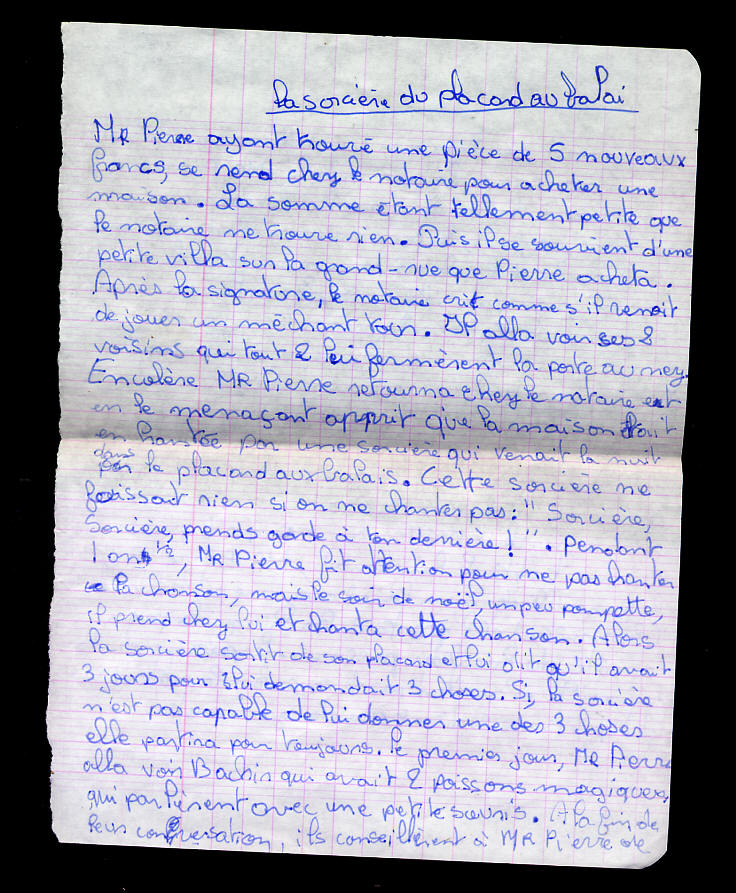 La sorcière du placard au balai
MR Pierre ayant trouvé une pièce de 5 nouveaux
francs, se rend chez le notaire pour acheter une
maison. La somme étant tellement petite que
le notaire ne trouve rien. Puis il se souvient d'une
petite villa sur la grand-rue que Pierre acheta.
Après la signature, le notaire rit comme s'il venait
de jouer un méchant tour. Il alla voir ses 2
voisins qui tout 2 lui fermèrent la porte au nez.
En colère MR Pierre retourna chez le notaire et
en le menaçant apprit que la maison était
en hantée par une sorcière qui venait la nuit
dans le placard aux balais. Cette sorcière ne
faissait rien si on ne chanter pas : " Sorcière,
Sorcière, prends garde à ton derrière ! ". Pendant
1 an 1/2, MR Pierre fit attention pour ne pas chanter
la chanson, mais le soir de noël, un peu pompette,
il prend chez lui et chanta cette chanson. Alors
la sorcière sortit de son placard et lui dit qu'il avait
3 jours pour lui demandait 3 choses. Si, la sorcière
n'est pas capable de lui donner une des 3 choses
elle partira pour toujours. Le premier jour, MR Pierre
alla voir Bachir qui avait 2 poissons magiques,
qui parlèrent avec une petite souris. A la fin de
leur conversation, ils conseillèrent à MR Pierre de